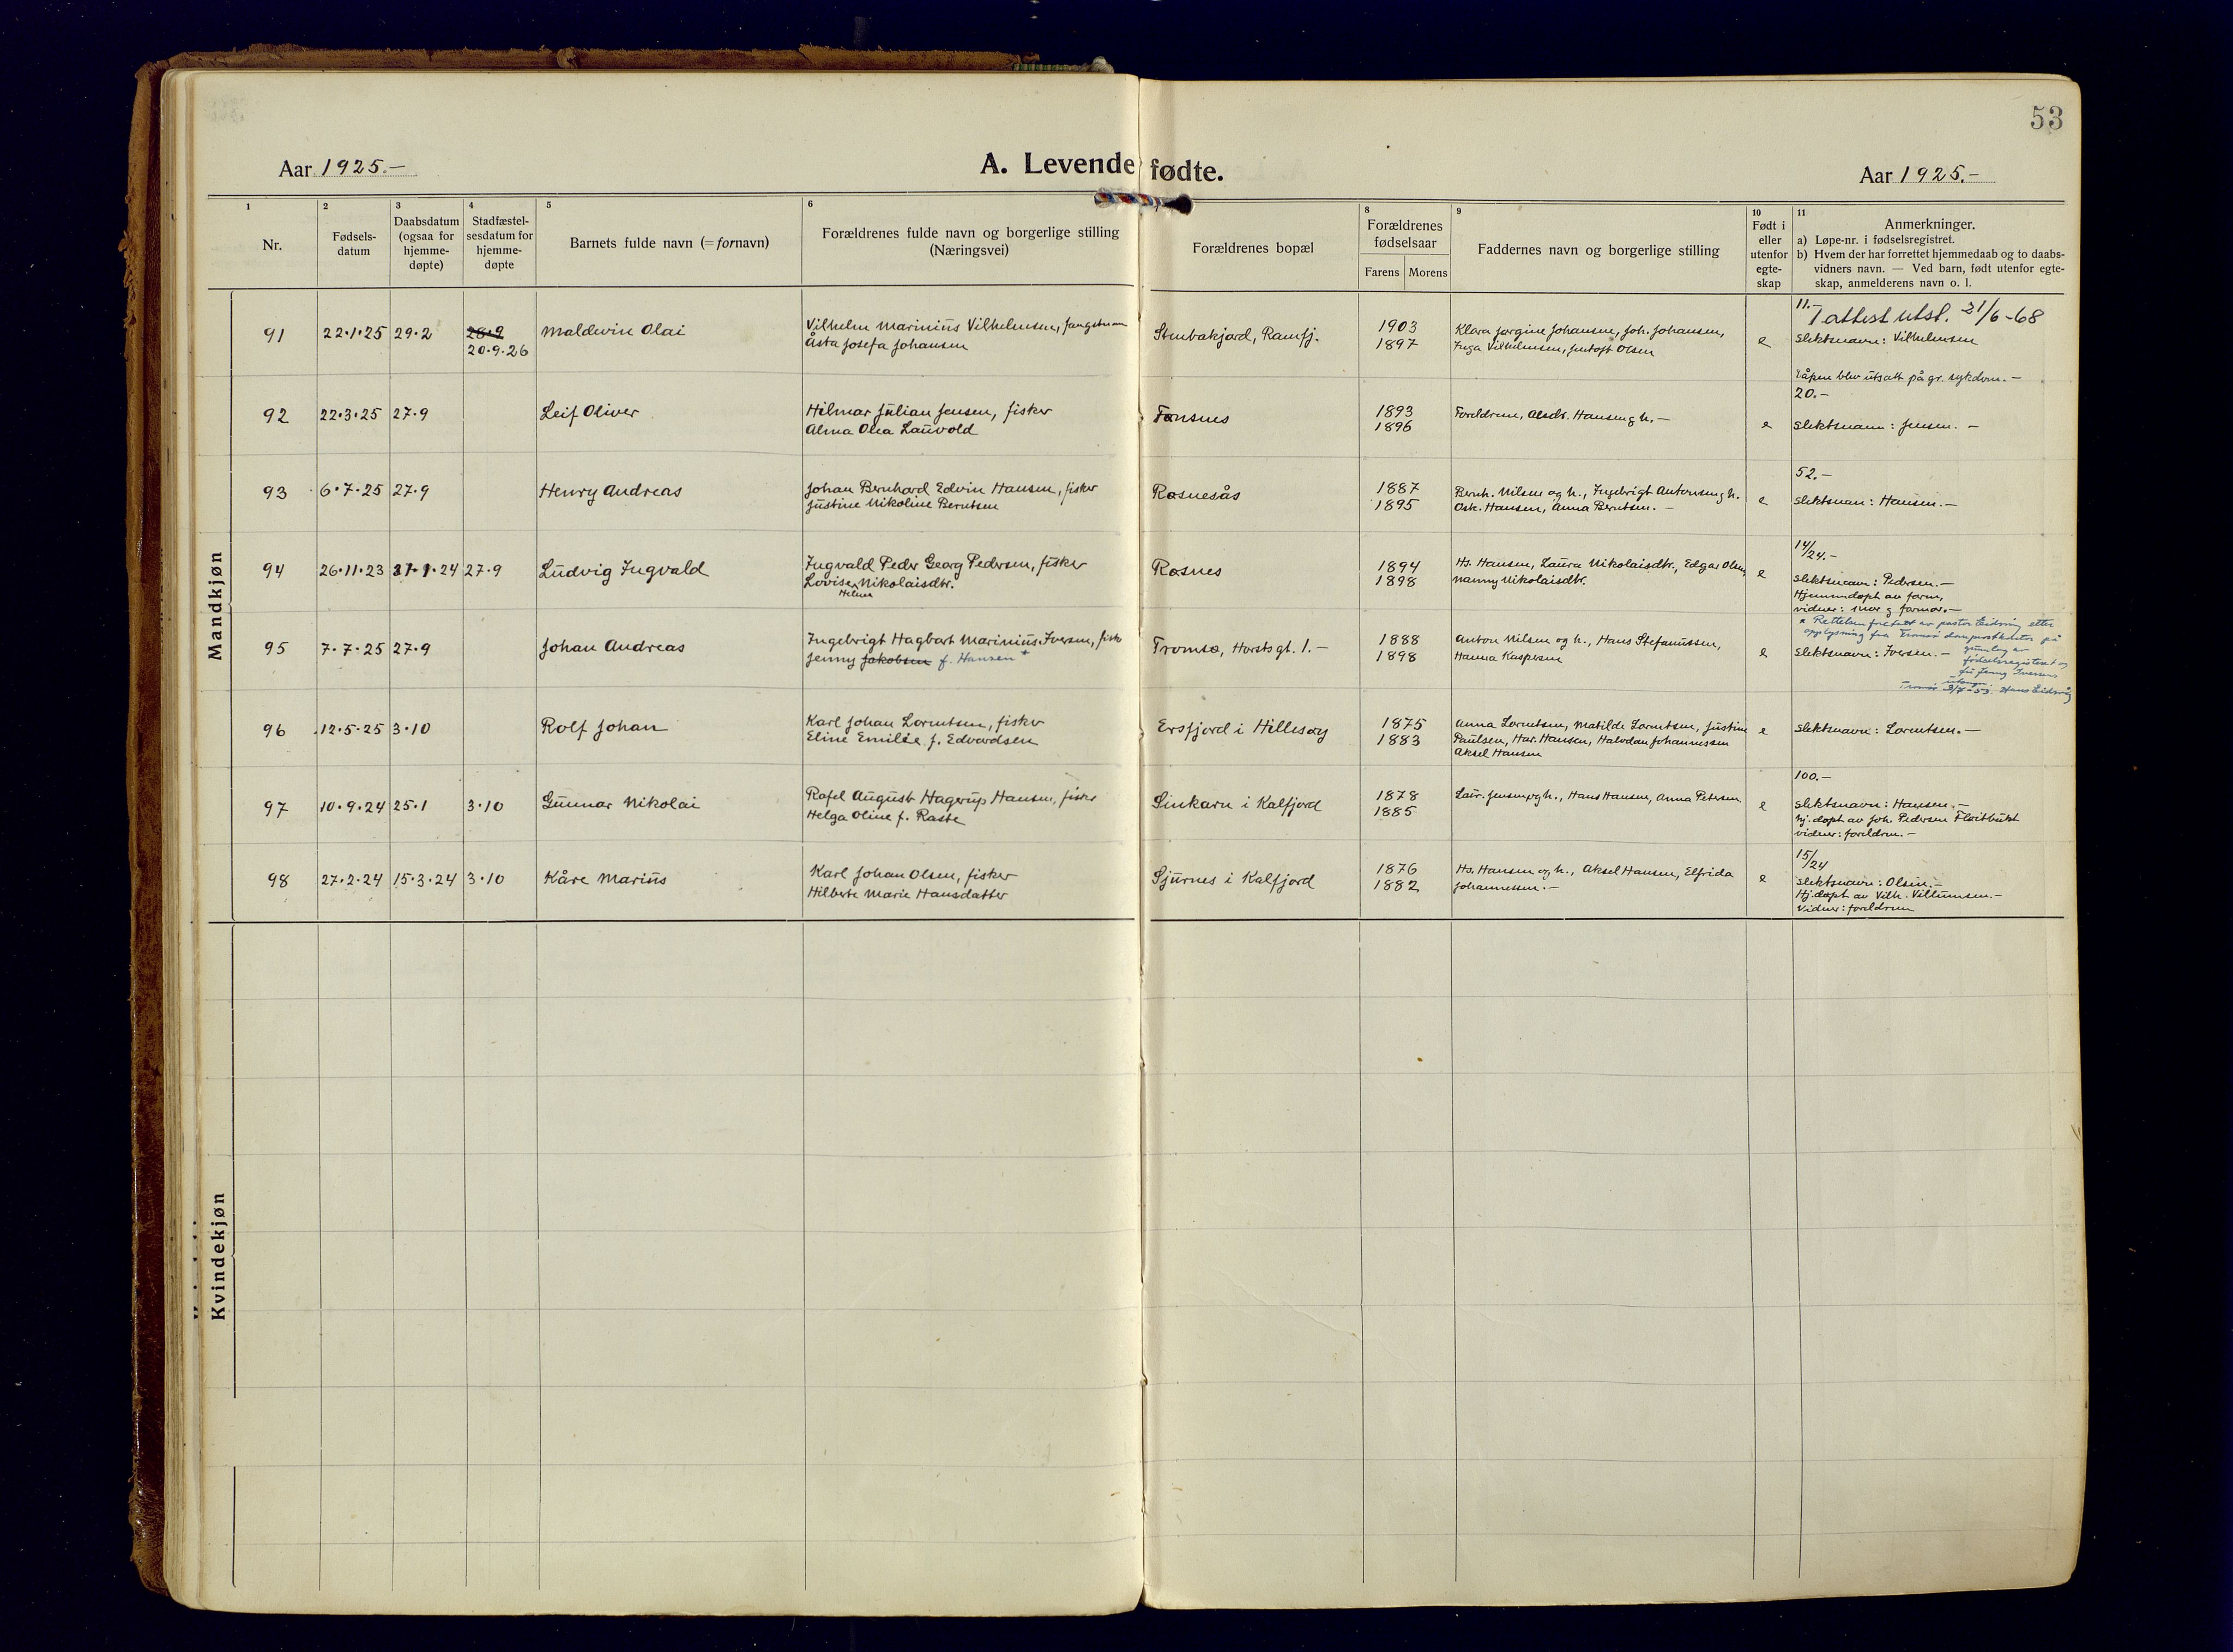 53
Aar 1925.-
A. Levende fødte.
Aar 1925.-
1 2 3 4 5 6 7 8 9 10 11
Nr.
Fødsels-
datum
Daabsdatum
(ogsaa for
hjemme-
døpte)
Stadfæstel-
sesdatum for
hjemme-
døpte
Barnets fulde navn (= fornavn)
Forældrenes fulde navn og borgerlige stilling
(Næringsvei)
Forældrenes bopæl
Forældrenes
fødselsaar
Farens Morens
Faddernes navn og borgerlige stilling
Født i
eller
utenfor
egte-
skap
Anmerkninger.
a) Løpe-nr. i fødselsregistret.
b) Hvem der har forrettet hjemmedaab og to daabs-
vidners navn. — Ved barn, født utenfor egte-
skap, anmelderens navn o. l.
Mandkjøn
91 22.1.25 29.2 28.9
20.9.26
Maldewin Olai
Vilhelm Marinius Vilhelmsen, fangstmann
Åsta Josefa Johansen
Stenbakjord, Ramfj.
1903
1897
Klara Jørgine Johansen, Joh. Johansen,
Inga Vilhelmsen, Olsen
e
11.-
1 attest utst. 21/6-68
slektsnavn: Vilhelmsen
Dåpen blev utsatt på gr. sykdom.-
92 22.3.25 27.9
Leif Oliver
Hilmar Julian Jensen, fisker
Alma Olea Lauvold
Tønsnes
1893
1896
Foreldrene, Alsdr. Hansen g h.-
e
20.-
slektsnavn: Jensen.-
93 6.7.25 27.9
Henry Andreas
Johan Bernhard Edvin Hansen, fisker
Justine Nikoline Berntsen
Røsnesås
1887
1895
Bernh. Nilsen og h., Ingebrigt Antonsen g h.
Osk. Hansen, Anna Berntsen.-
e
52.-
slektsnavn: Hansen.-
94 26.11.23 27.1.24 27.9
Ludvig Ingvald
Ingvald Peder Georg Pedersen, fisker
Lovise Nikolaisdtr.
Helene
Røsnes
1894
1898
Hs. Hansen, Laura Nikolaisdtr., Edgar Olsen,
Nanny Nikolaisdtr.
e
14/24.-
slektsnavn: Pedersen.-
Hjemmedøpt av farm,
vidner: mor g farmor.-
95 7.7.25 27.9
Johan Andreas
Ingebrigt Hagbart Marinius Iversen, fisker
Jenny Jakobsen f. Hansen*
Tromsø, Storgt. 1.-
1888
1898
Anton Nilsen og h., Hans Stefanussen,
Hanna Kaspersen
e
* Rettelsen foretatt av pastor Eidsvåg etter
opplysning fra Tromsø domprostkontor på
grunnlag av
fødselsregisteret og
fru Jenny Iversens
utsagn.
Tromsø 3/7-53. Hans Eidsvåg
slektsnavn: Iversen.-
96 12.5.25 3.10
Rolf Johan
Karl Johan Lorentsen, fisker
Eline Emilie f. Edvardsen
Ersfjord i Hillesøy
1875
1883
Anna Lorentsen, Matilde Lorentsen, Justine
Paulsen, Har. Hansen, Halvdan Johannessen
Aksel Hansen
e
slektsnavn: Lorentsen.-
97 10.9.24 25.1 3.10
Gunnar Nikolai
Rafel August Hagerup Hansen, fisker
Helga Oline f. Raste
Sinkarn i Kalfjord
1878
1885
Laur. Jensen og h., Hans Hansen, Anna Petersen
e
100.-
slektsnavn: Hansen.-
hj. døpt av Joh. Pedersen Fløitbukt
vidner: foreldren.-
98 27.2.24 15.3.24 3.10
Kåre Marius
Karl Johan Olsen, fisker
Hilberte Marie Hansdatter
Sjurnes i Kalfjord
1876
1882
Hs. Hansen og h., Aksel Hansen, Elfrida
Johannessen.-
e
15/24
slektsnavn: Olsen.-
Hj. døpt av Vilh. Villumsen.-
Vidner: foreldren
Kvindekjøn